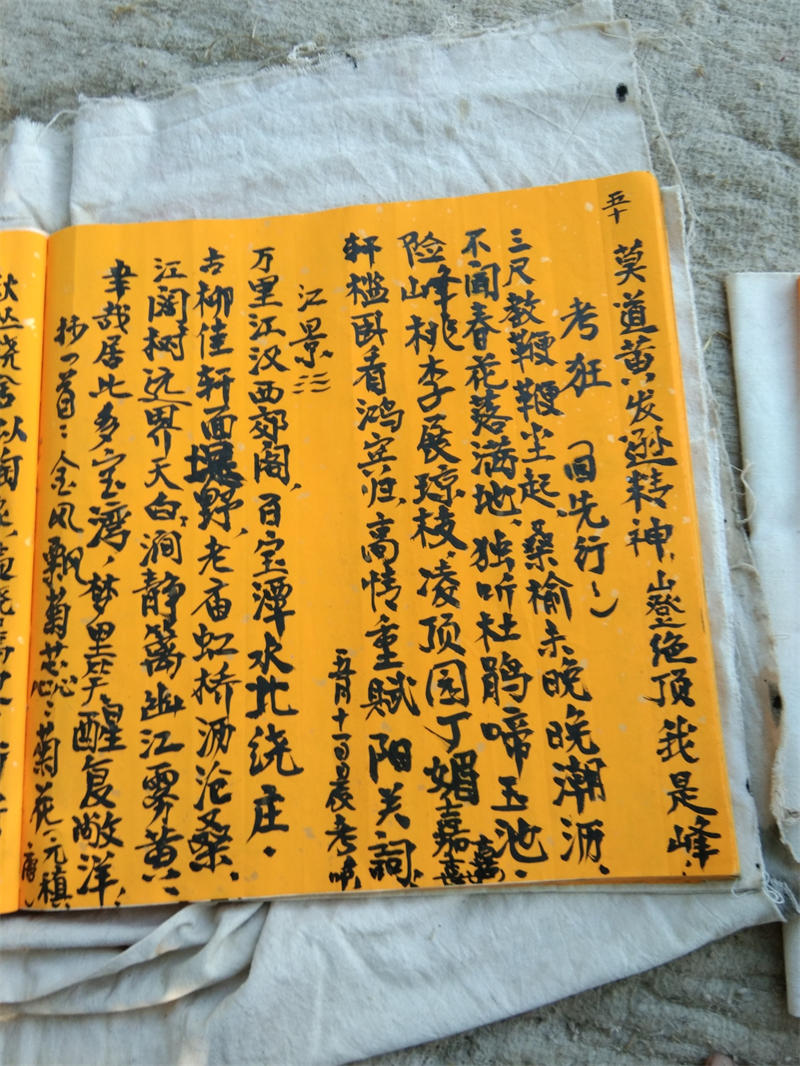 五十
莫道黄发逊精神，山登绝顶我是峰。
考狂（回先行～）
三尺教鞭鞭尘起，桑榆未晚晚潮沥。
不闻春花落满地，独听杜鹃啼玉池。
险山峰桃李展琼枝，凌顶园丁媚嘉嘉
轩槛卧看鸿宾归，高情重赋阳关词。
五月十一日晨考
江景三
万里江汉西郊阁，百宝潭水北绕庄。
古柳佳轩面堰野，老庙虹桥沥沧桑。
江阔树远界天白，涧静篱幽江雾黄。
幸哉居此多宝湾，梦里醒复徜徉。
抄一首：金风飘菊蕊心：菊花：元稹（唐）